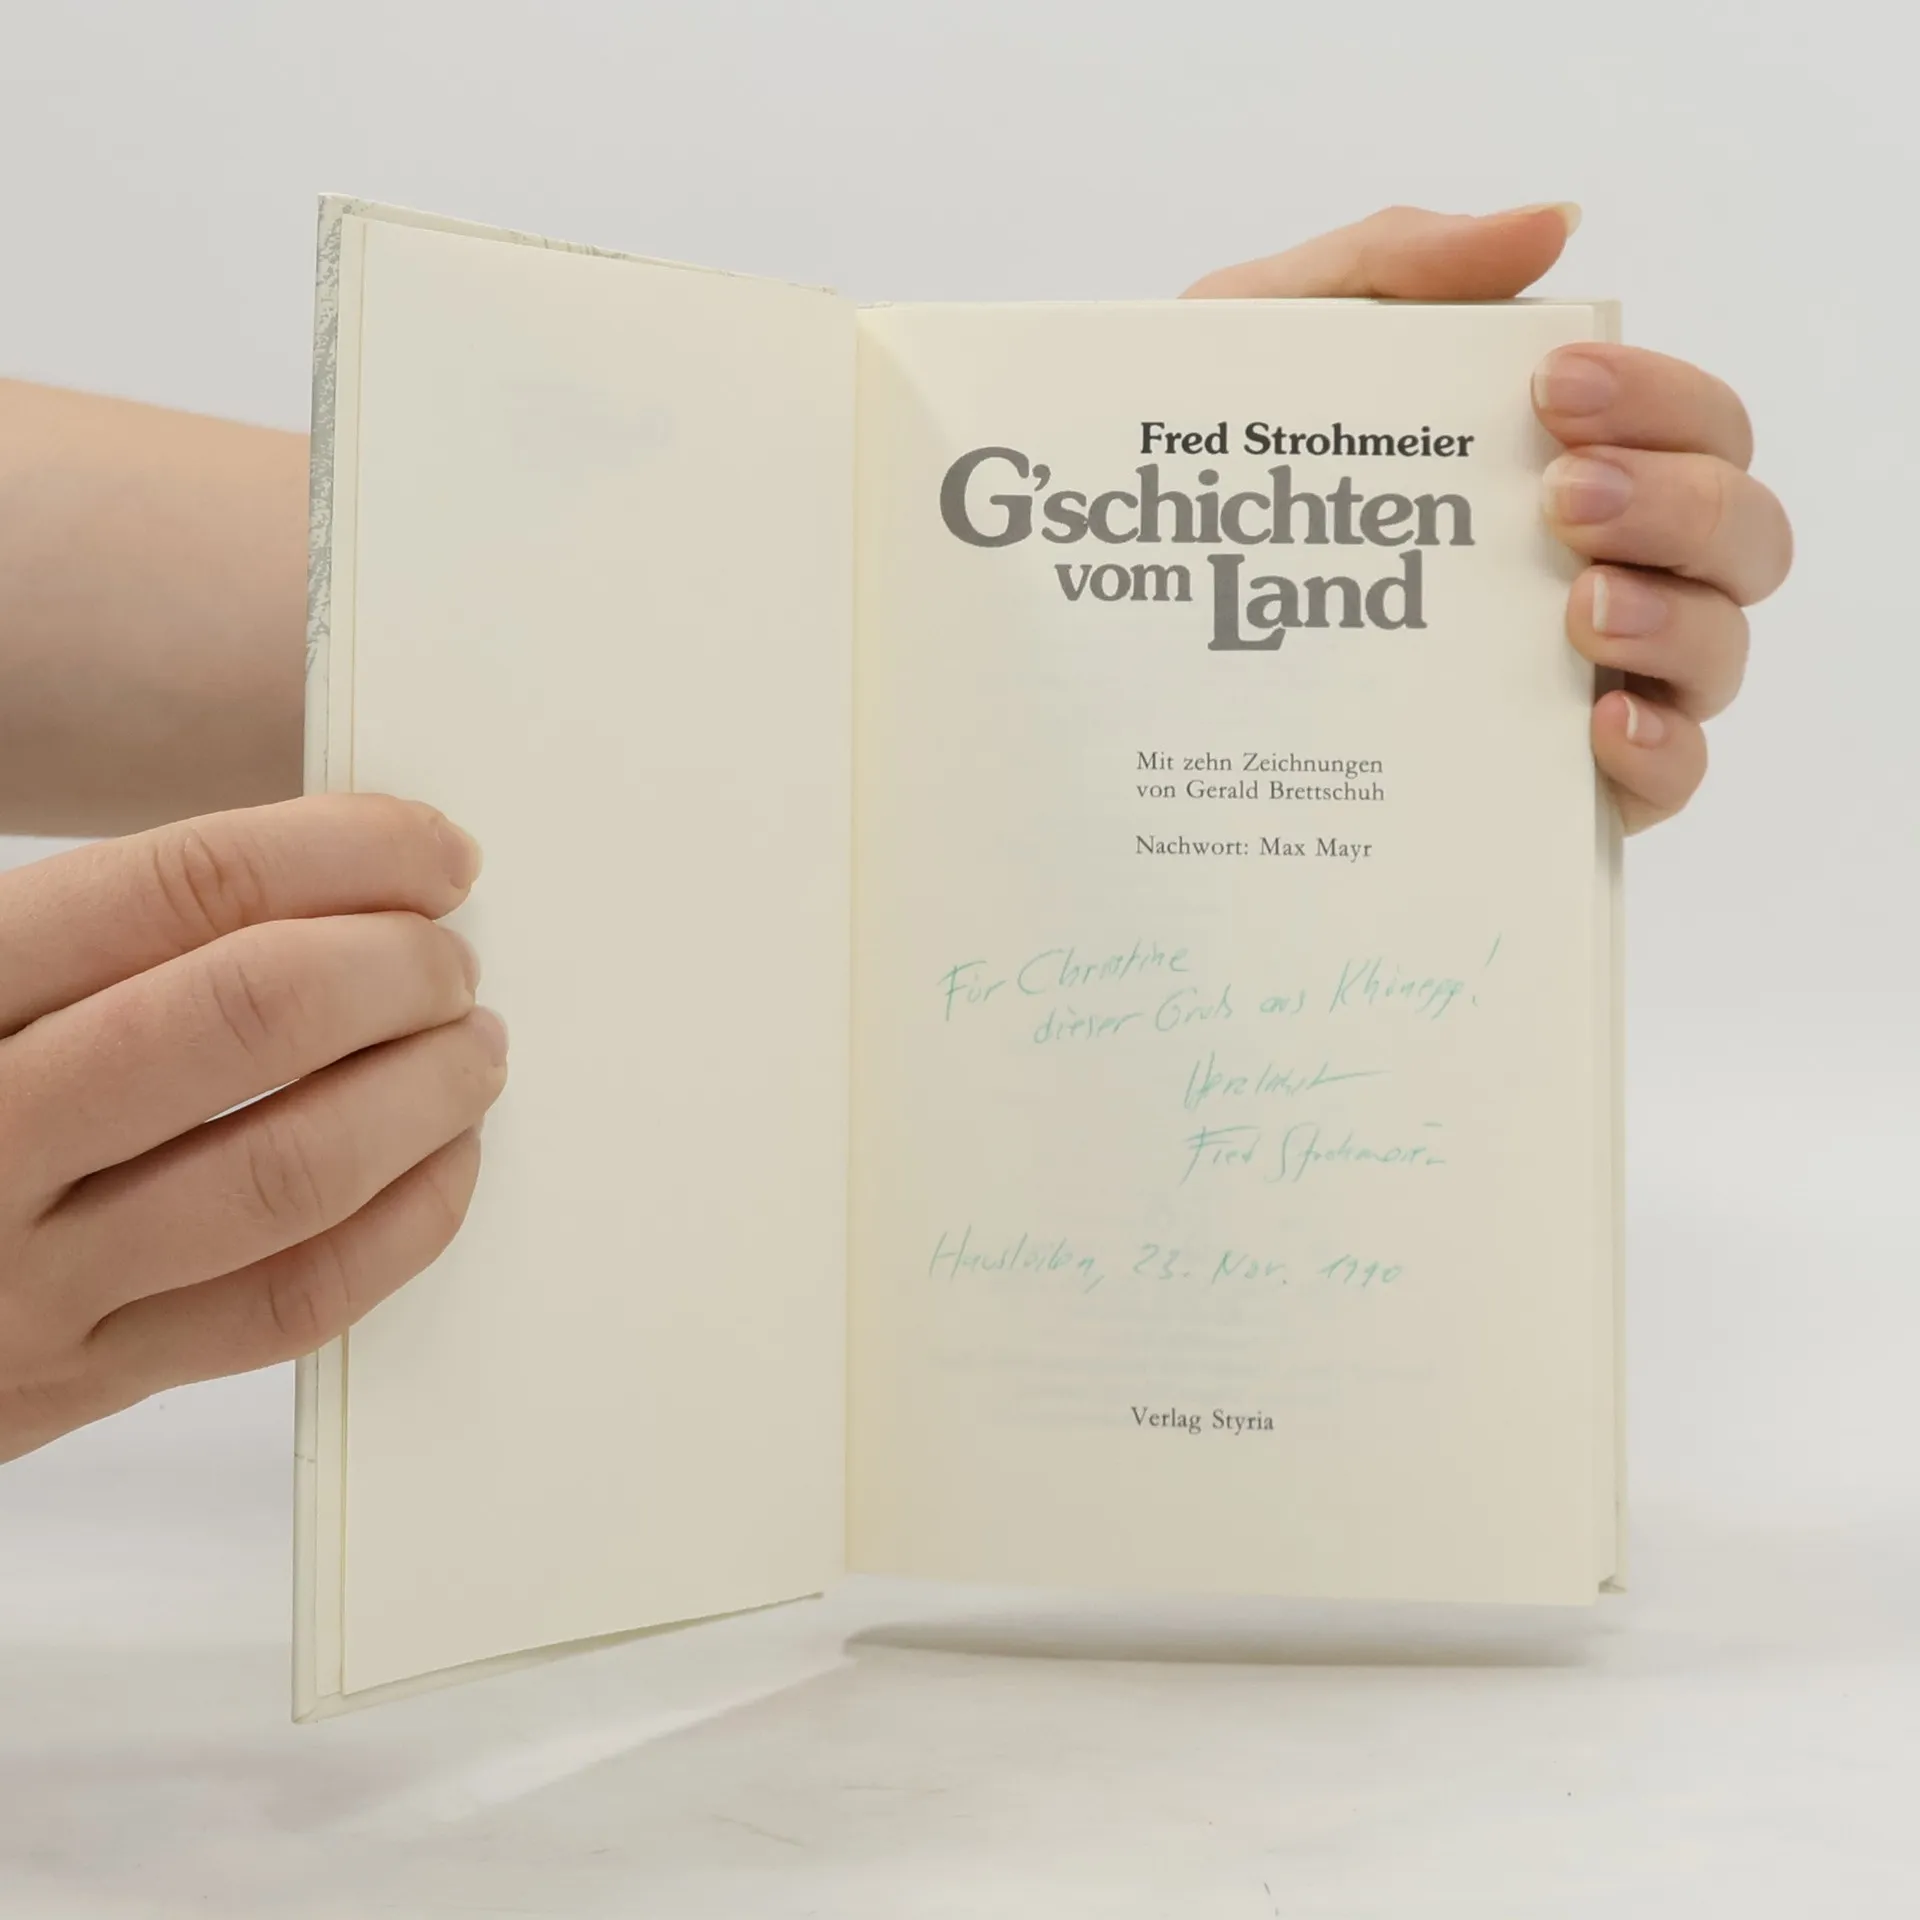 Fred Strohmeier
G'schichten
vom Land
Mit zehn Zeichnungen
von Gerald Brettschuh
Nachwort: Max Mayr
Für Christine
dieser Gruß aus
Herzlichst
Fred Strohmeier
23. Nov. 1990
Verlag Styria